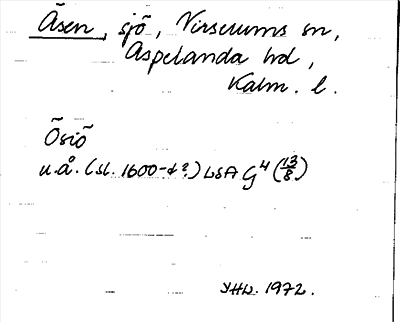 Åsen, sjö, Virserums sn,
Aspelanda hd,
Kalm. l.
Ösiö
u.å. (sl. 1600-t?) LSA G4 (13/8)
YHL. 1972.